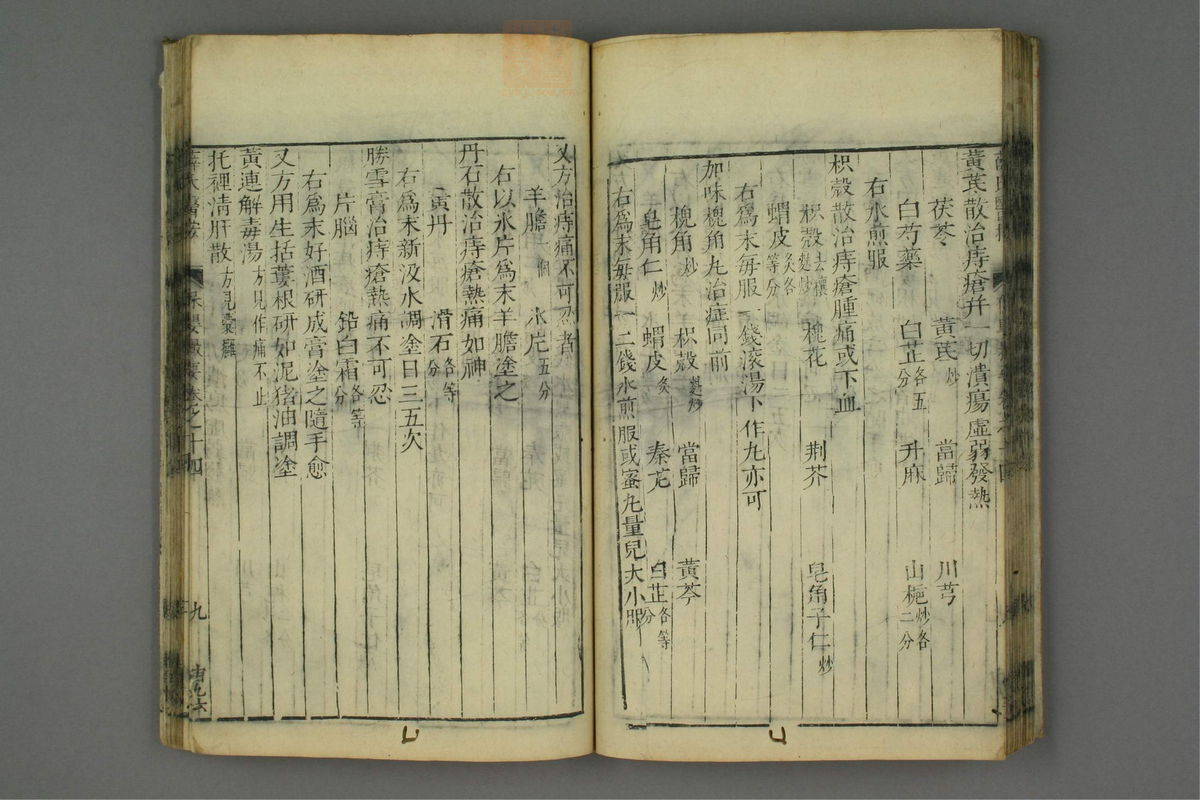 黃芪散治痔瘡并一切潰瘍虛弱發熱
茯苓 黃芪炒 當歸 川芎
白芍藥 白芷各五分 升麻 山梔炒各二分
右水煎服
枳殼散治痔瘡腫痛或下血
枳殼去穰麩炒 槐花 荆芥 皂角子仁炒
蝟皮炙各等分
右爲末毎服一錢滚湯下作丸亦可
加味槐角丸治症同前
槐角炒 枳殼麩炒 當歸 黃芩
皂角仁炒 蝟皮炙 秦艽 白芷各等分
右爲末毎服一二錢水煎服或蜜丸量兒大小服
又方治痔痛不可忍者
羊膽一個 氷片五分
右以氷片爲末羊膽塗之
丹石散治痔瘡熱痛如神
黃丹 滑石各等分
右爲末新汲水調塗日三五次
勝雪膏治痔瘡熱痛不可忍
片腦 鉛白霜各等分
右爲末好酒研成膏塗之隨手愈
又方用生括蔞根研如泥猪油調塗
黃連解毒湯方見作痛不止
托裡清肝散方見囊癰
薛氏醫按 保嬰撮要卷之十四 九